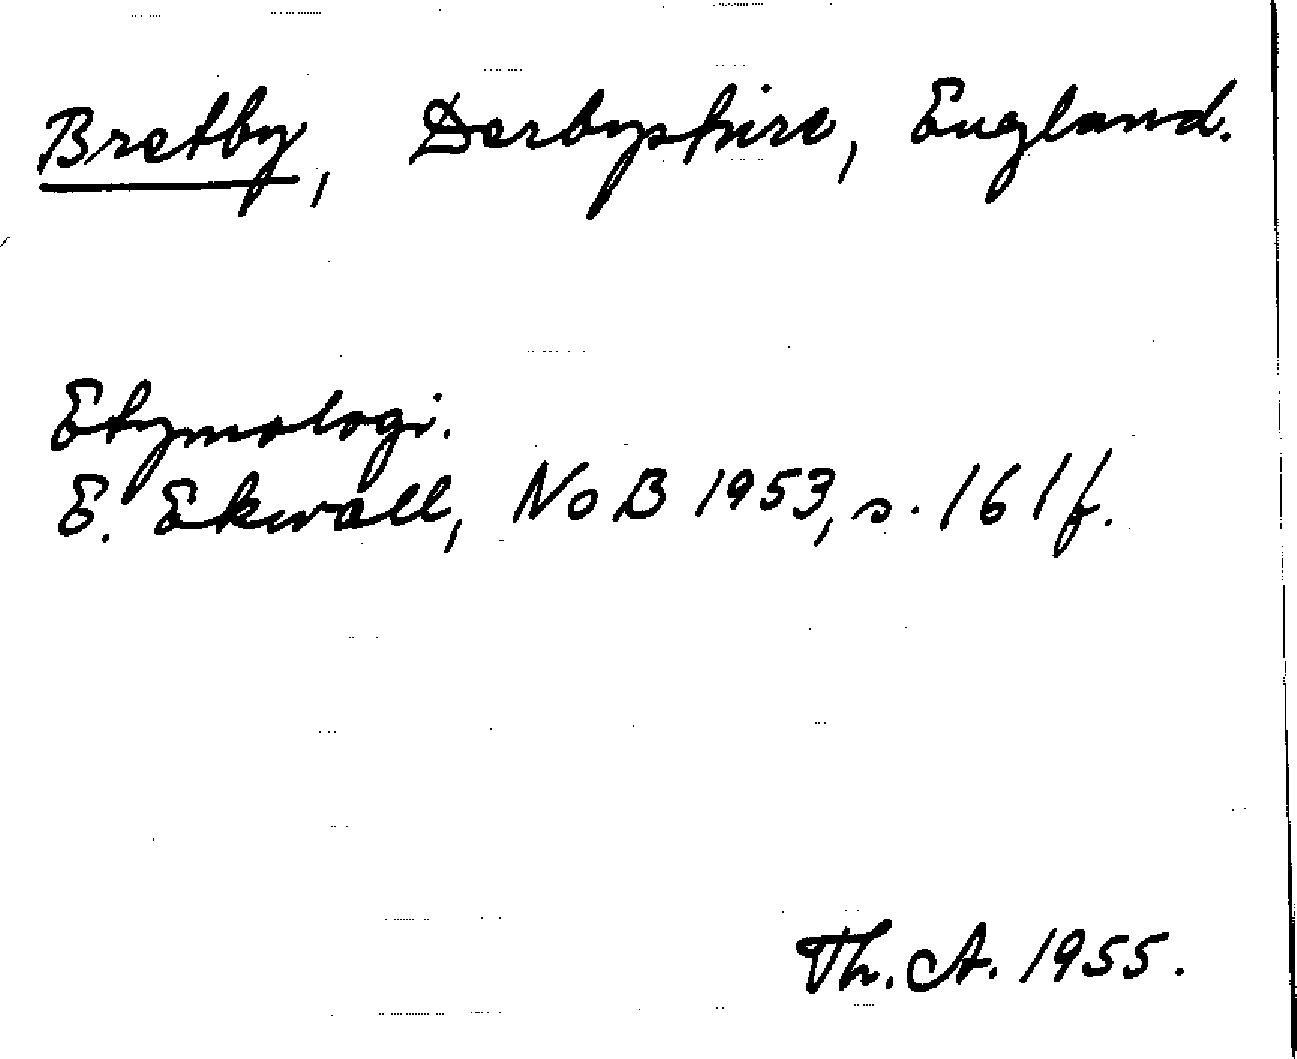 Bretby, Derbyshire, England.
Etymologi.
E. Ekwall, NoB 1953, s. 161f.
Th. A. 1955.